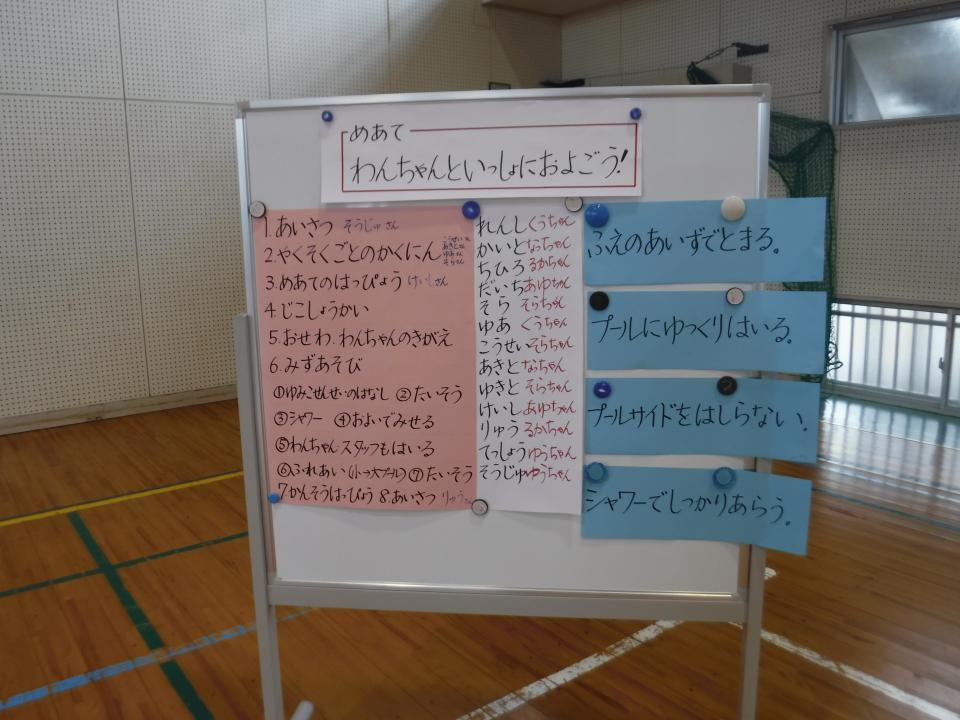 めあて
わんちゃんといっしょにおよごう!
1.あいさつ そうじゅさん
2.やくそくごとのかくにん
3.めあてのはっぴょう けいしさん
4.じこしょうかい
5.おせわ.わんちゃんのきがえ
6.みずあそび
①ゆみこせんせいのはなし ②たいそう
③シャワー ④およいでみせる
⑤わんちゃん スタッフもはいる
⑥ふれあい(小→大プール)⑦たいそう
7かんそうはっぴょう 8あいさつ りゅうさん
れんし くうちゃん
かいと ならちゃん
ちひろ るかちゃん
だいち あゆちゃん
そら そらちゃん
ゆあ くうちゃん
こうせい そらちゃん
あきと ならちゃん
ゆきと そらちゃん
けいし あゆちゃん
りゅう るかちゃん
てっしょう ゆうちゃん
そうじゅ ゆうちゃん
ふえのあいずでとまる。
プールにゆっくりはいる。
プールサイドをはしらない.
シャワーでしっかりあらう。